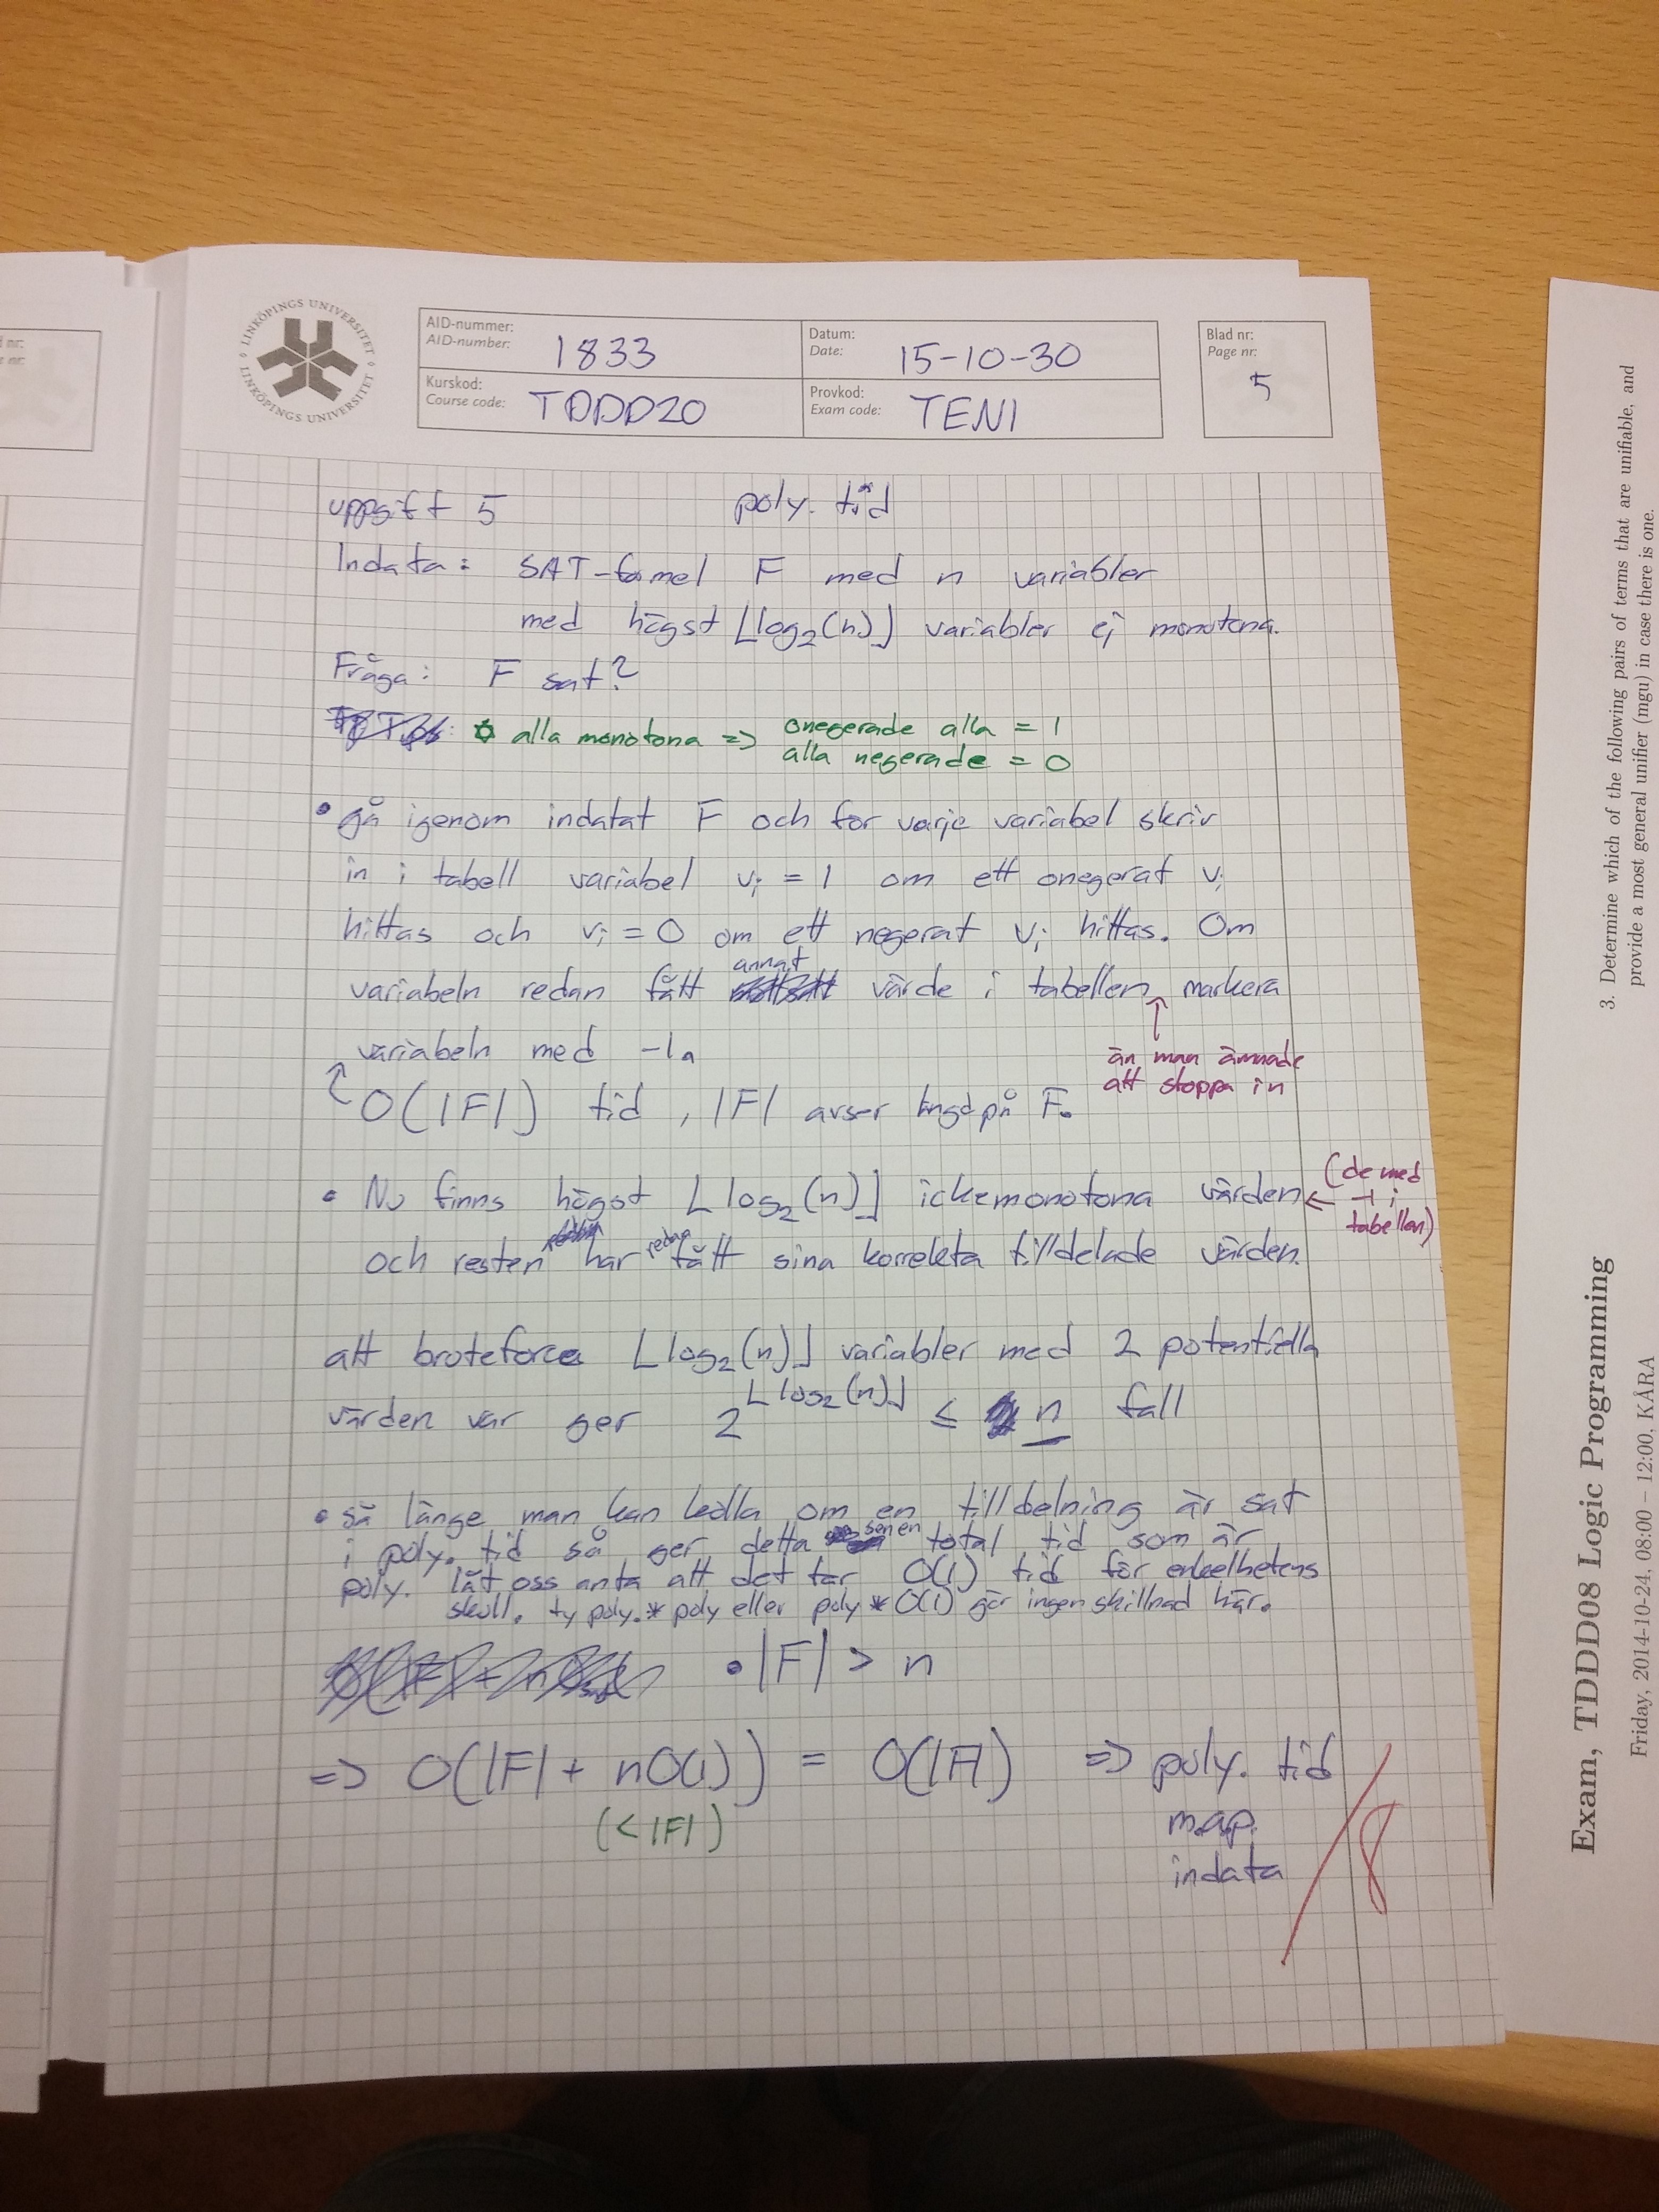 LINKÖPINGS UNIVERSITET
LINKÖPINGS UNIVERSITET
AID-nummer:
AID-number:
1833
Datum:
Date:
15-10-30
Blad nr:
Page nr:
5
Kurskod:
Course code:
TDDD20
Provkod:
Exam code:
TEN1
uppgift 5 poly. tid
Indata: SAT-formel F med n variabler
med högst ⌊log₂(n)⌋ variabler ej monotona.
Fråga: F sat?
alla monotona => onegerade alla = 1
alla negerade = 0
• gå igenom indatat F och för varje variabel skriv
in i tabell variabel vᵢ = 1 om ett onegerat vᵢ
hittas och vᵢ = 0 om ett negerat vᵢ hittas. Om
variabeln redan fått annat värde i tabellen markera
än man ämnade
att stoppa in
variabeln med -1.
O(|F|) tid, |F| avser längd på F.
• Nu finns högst ⌊log₂(n)⌋ ickemonotona värden ← (de med -1 i tabellen)
och resten har redan fått sina korrekta tilldelade värden.
att bruteforcea ⌊log₂(n)⌋ variabler med 2 potentiella
värden var ger 2^⌊log₂(n)⌋ ≤ n fall
• så länge man kan kolla om en tilldelning är sat
i poly. tid så ger detta sen en total tid som är
poly. låt oss anta att det tar O(1) tid för enkelhetens
skull, ty poly.*poly eller poly*O(1) gör ingen skillnad här.
• |F| > n
=> O(|F| + nO(1)) = O(|F|) => poly. tid
(<|F|)
m.a.p.
indata
8
3. Determine which of the following pairs of terms that are unifiable, and
provide a most general unifier (mgu) in case there is one.
Exam, TDDD08 Logic Programming
Friday, 2014-10-24, 08:00 – 12:00, KÅRA